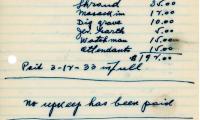 Shroud 35.00
17.00
Dig grave 10.00
Jew. Hearth 5.00
Watchman 15.00
Attendants 15.00
$197.00
Paid 3-17-33 in full
No upkeep has been paid